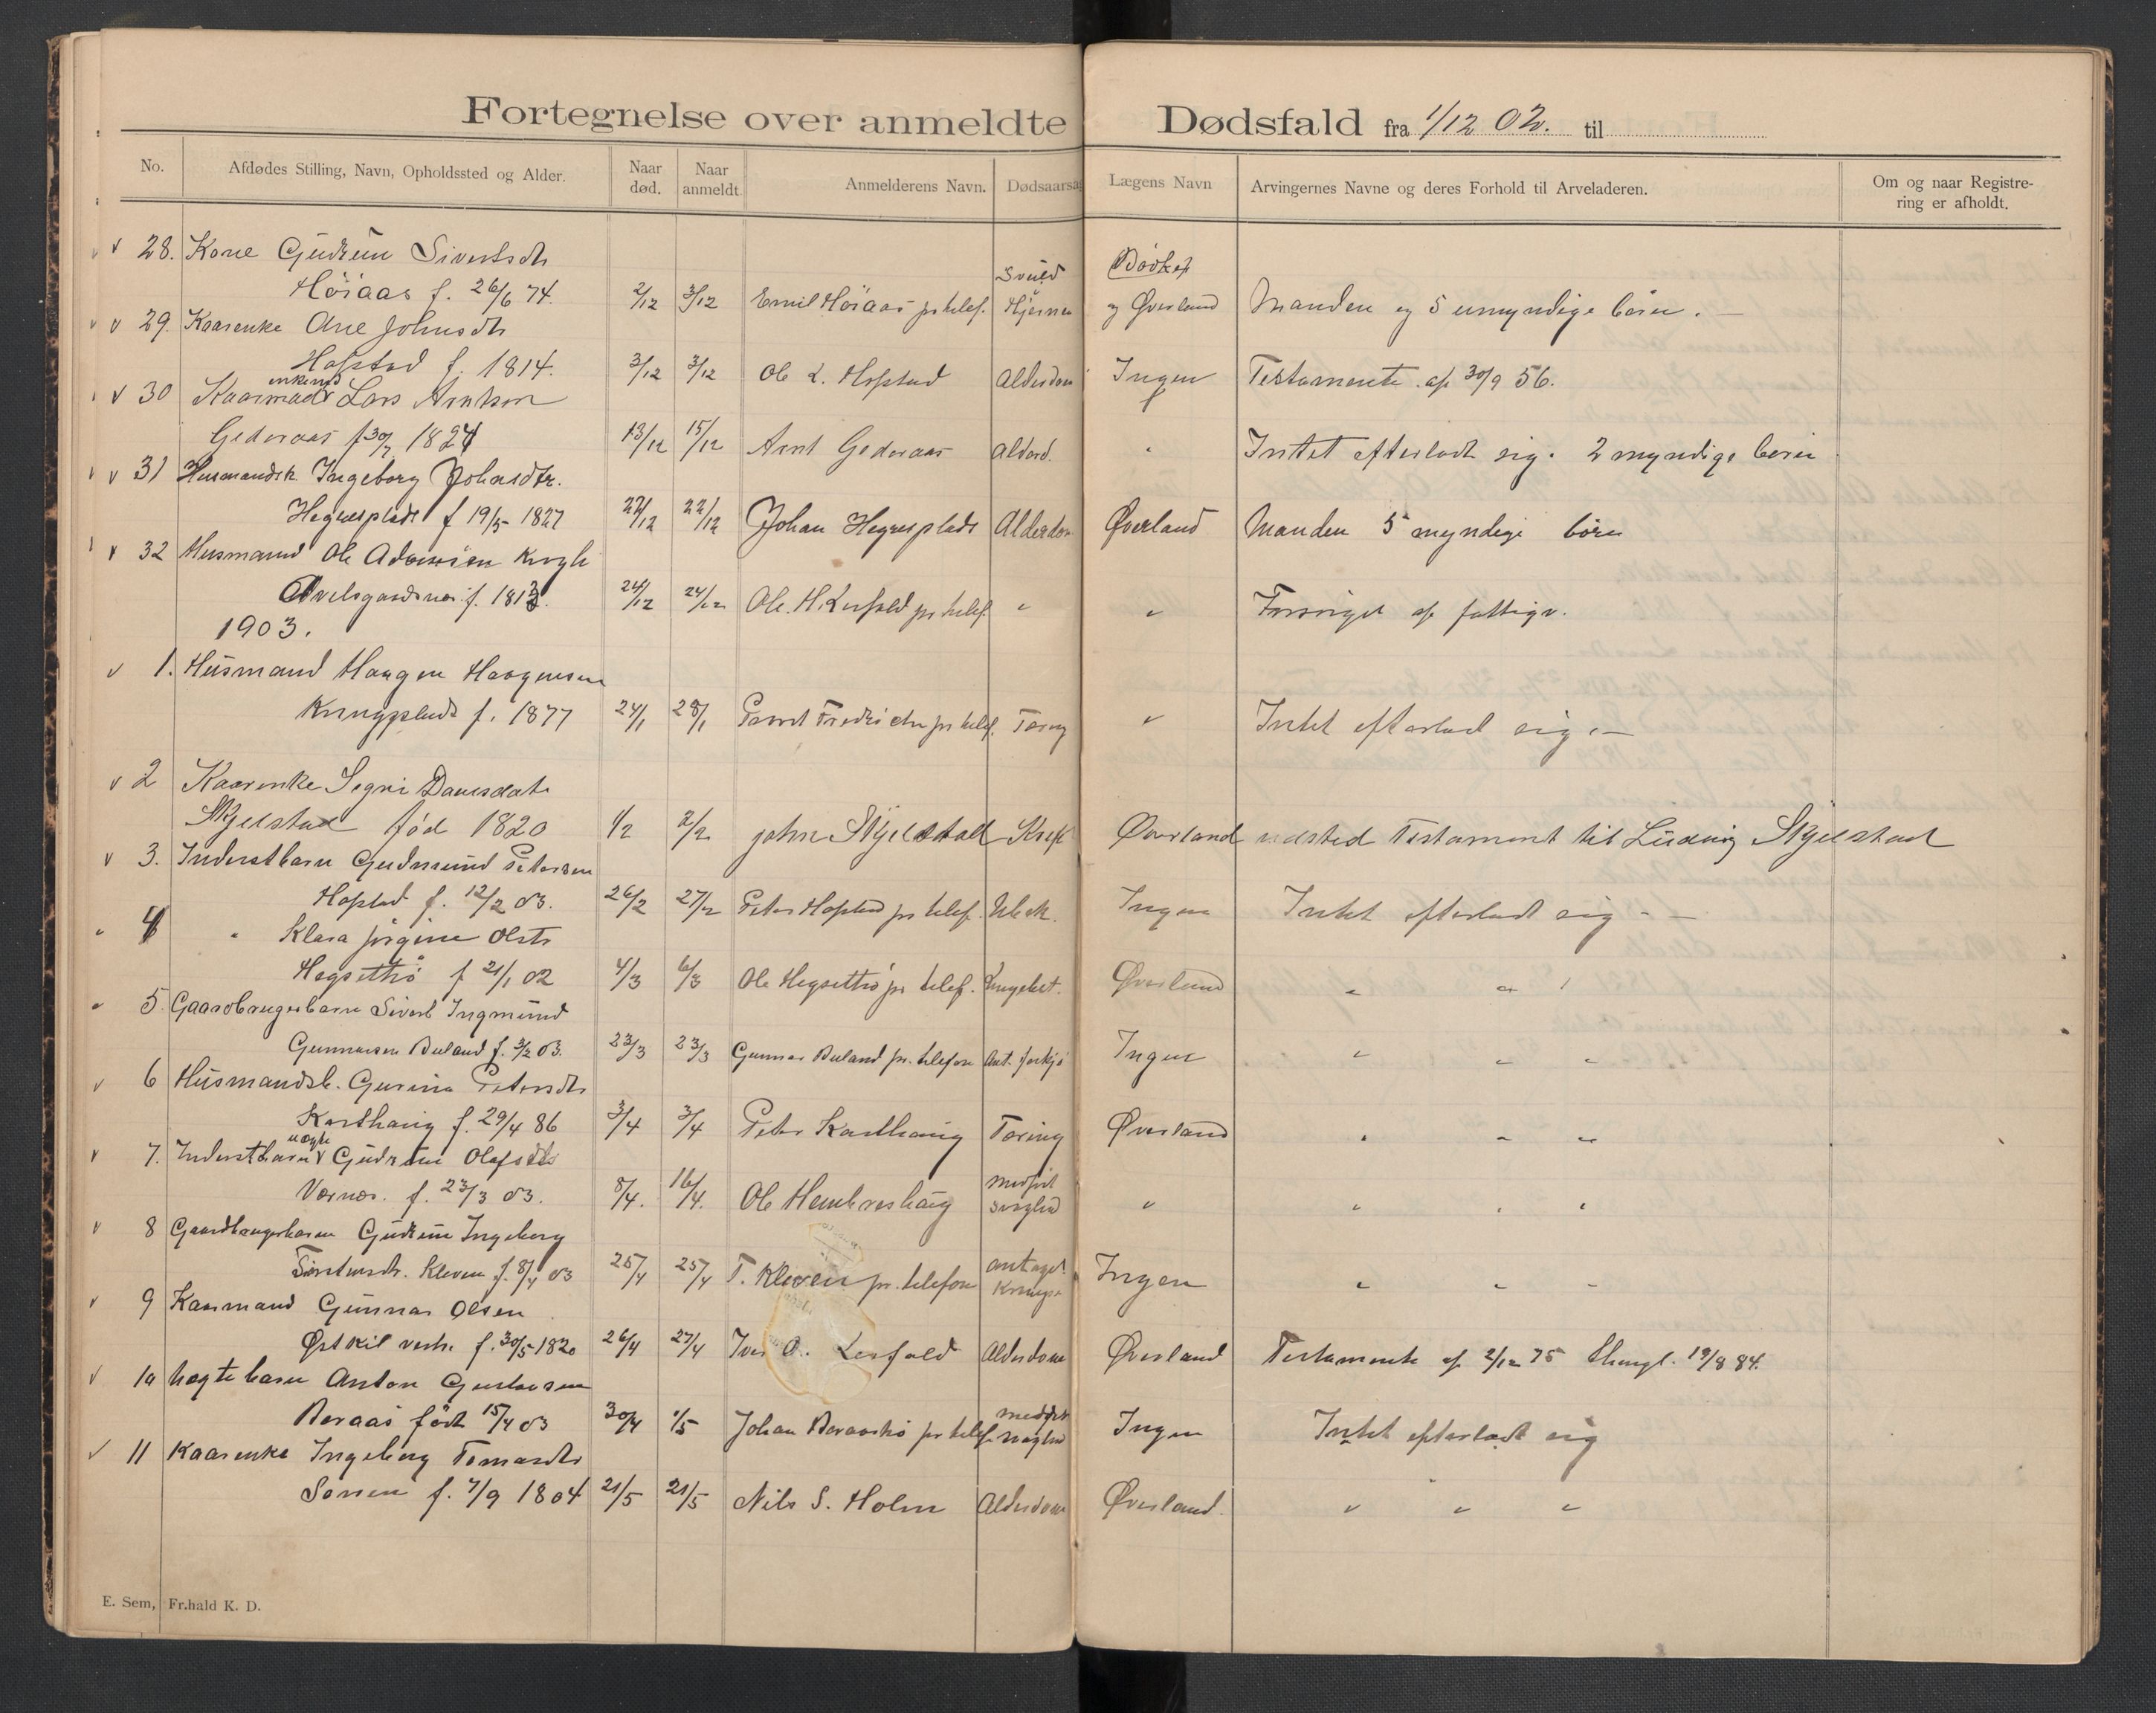 Fortegnelse over anmeldte Dødsfald fra 1/12 02. til
No. Afdødes Stilling, Navn, Opholdssted og Alder. Naar død. Naar anmeldt. Anmelderens Navn. Dødsaarsag Lægens Navn Arvingernes Navne og deres Forhold til Arveladeren. Om og naar Registrering er afholdt.
28. Kone Gudrun Sivertsdtr
Höiaas f. 26/6 74. 2/12 3/12 Emil Höiaas pr telef. Svulst Hjernen og Øverland Manden og 5 umyndige börn. —
29. Kaarenke Ane Johnsdtr
Hofstad f. 1814. 3/12 3/12 Ole L. Hofstad Alderdom Ingen Testamente af 30/9 56.
30 Kaarmand enkemd Lars Arntsen
Gederaas f 30/7 1824 13/12 15/12 Arnt Gederaas Alderd. " Intet efterladt sig. 2 myndige börn
31 Husmandsk. Ingeborg Johnsdtr.
Hegnesplads f 19/5 1827 22/12 22/12 Johan Hegnesplads Alderdom Øverland Manden 5 myndige börn
32 Husmand Ole Adamsen
f. 1813. 24/12 24/12 Ole H. Lerfald pr telef. " " Forsörget af fattigv.
1903.
1. Husmand Haagen Haagensen
f. 1877 24/1 28/1 pr telef. Tæring " Intet efterlad sig. —
2 Kaarenke Segri Danesdatr
Skjelstad föd 1820 1/2 2/2 john Skjelstad Kreft Øverland udsted Testament til Ludvig Skjelstad
3. Inderstbarn Gudmund Petersen
Hofstad f. 12/2 03. 26/2 27/2 Peter Hofstad pr telef. Ubek. Ingen Intet efterladt sig. —
4 " Klara Jörgine Olsdtr
Hegsetthrö f 21/1 02 4/3 6/3 Ole Hegsetthrö pr telef. Lungebet. Øverland " " "
5. Gaardbrugerbarn Sivert Ingmund
Gunnarsen Buland f. 3/2 03. 23/3 23/3 Gunnar Buland pr. telefon Ant. forkjö Ingen " " "
6 Husmandsb. Gurina Petersdtr
Karlhaug f. 29/4 86 3/4 3/4 Peter Karlhaug Tæring Øverland " " "
7. Inderstbarn uægte Gudrun Olafsdtr
Værnes. f. 23/3 03. 8/4. 16/4. Ole Hembreshaug medfödt svaghed " " " "
8 Gaardbrugerbarn Gudrun Ingeborg
Torstensdtr. Kleven f. 8/4 03 25/4 25/4 T. Kleven pr. telefon antagel. Krampe Ingen " " "
9 Kaarmand Gunnar Olsen
Østkil vestre f. 30/5 1820 26/4 27/4 Iver O. Lerfald Alderdom Øverland Testamente af 2/12 75 thingl. 19/8 84.
10 Uægte barn Anton Gustavsen
Beraas födt 15/4 03 30/4 1/5 Johan Beraaströ pr telef. medfödt svaghed Ingen Intet efterladt sig
11 Kaarenke Ingeborg Tomasdtr
f. 7/9 1804 21/5 21/5 Nils S. Holm Alderdom Øverland. " " "
E. Sem, Fr.hald K. D.